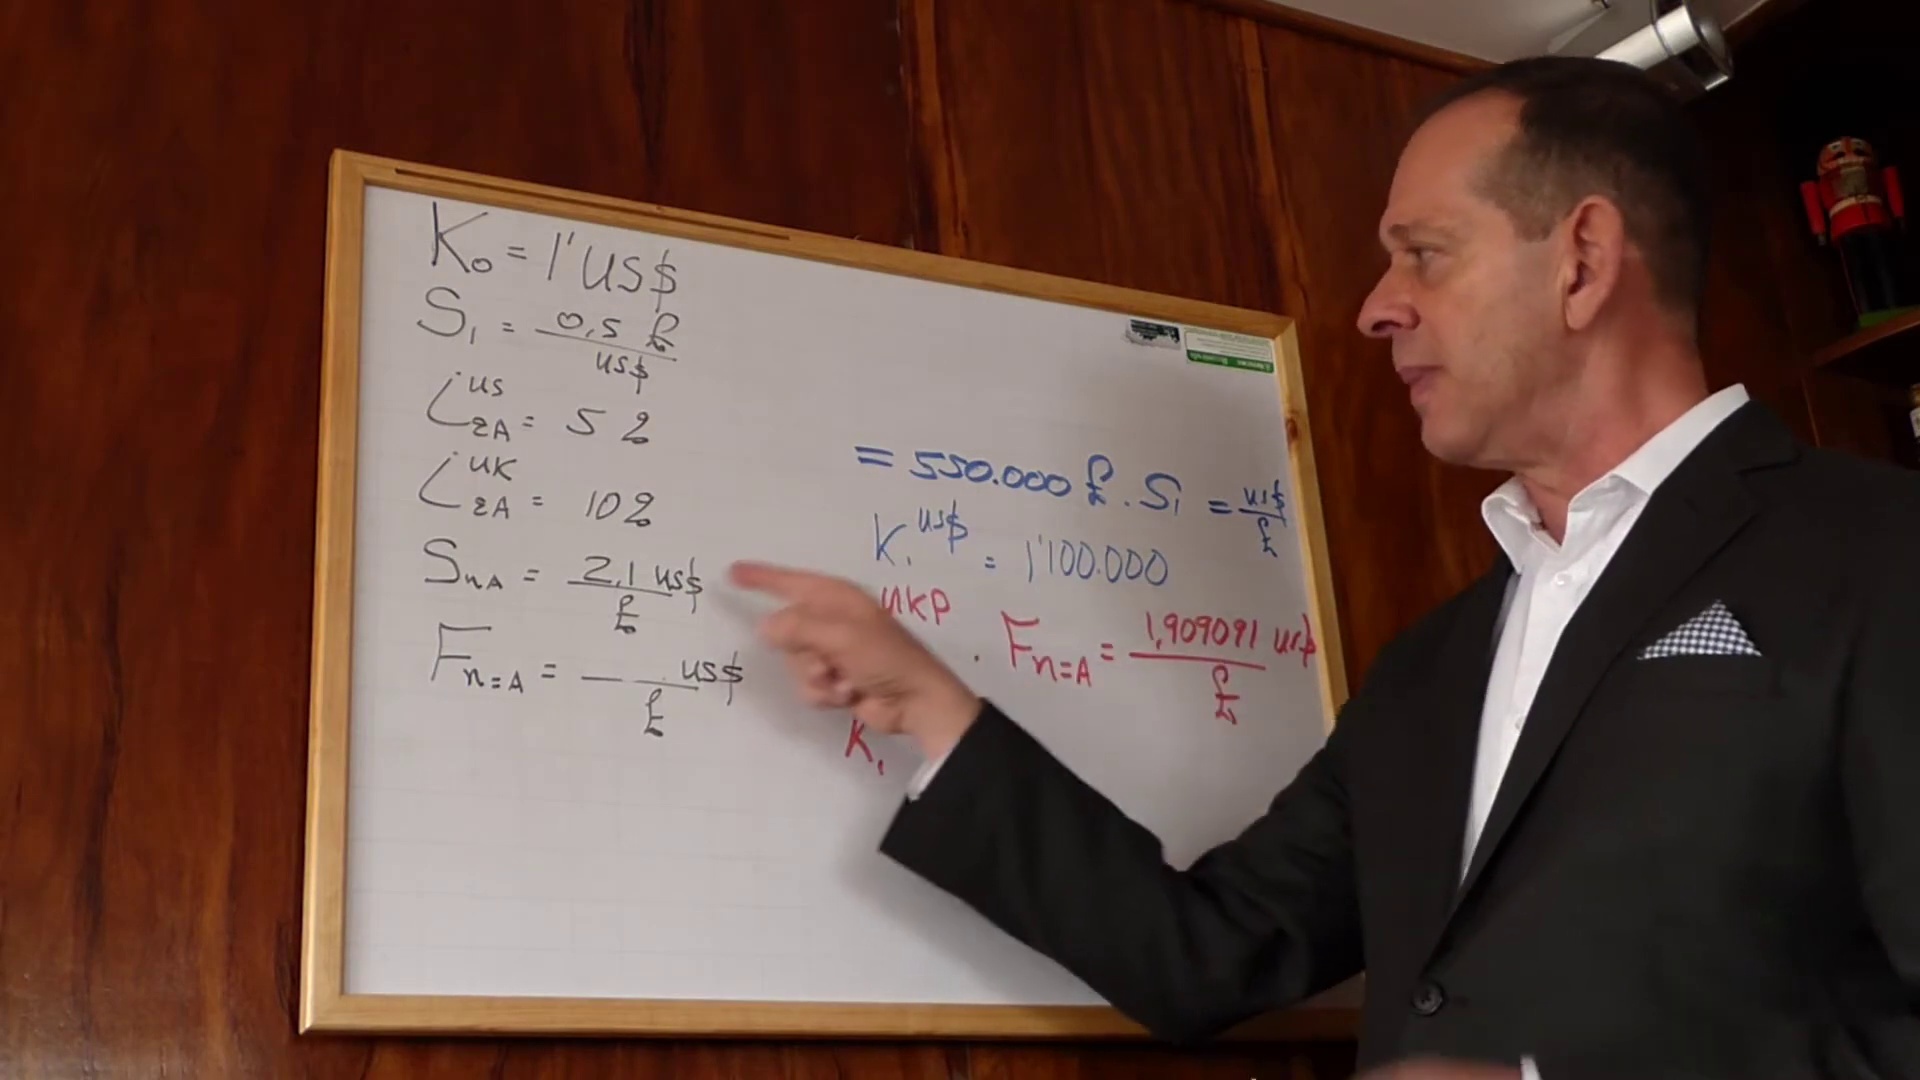 K₀ = 1' US$
S₁ = 0,5 £ / US$
i US ΣA = 5 %
i UK ΣA = 10 %
SnA = 2,1 US$ / £
Fn=A = __ . US$ / £
= 550.000 £ . S₁ = US$ / £
K₁ US$ = 1'100.000
UKP . Fn=A = 1,909091 US$ / £
K₁